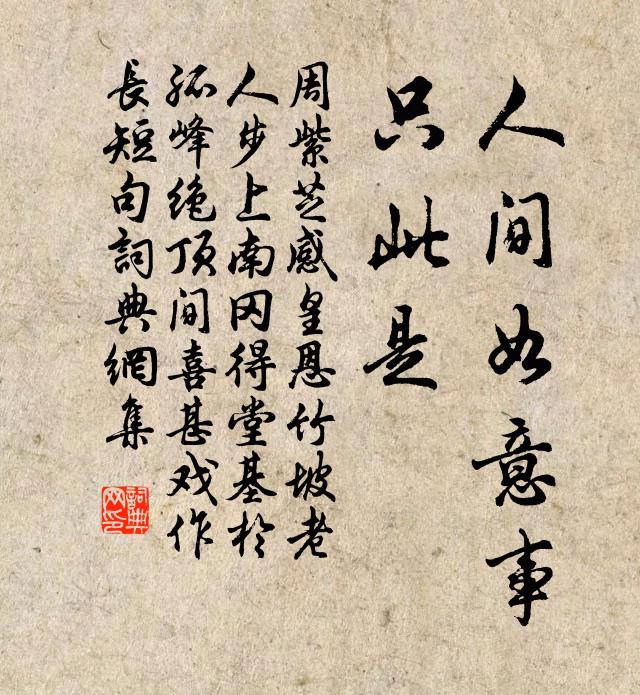 人间如意事
只此是
周紫芝感皇恩竹坡老
人步上南冈得堂基於
孤峰绝顶间喜甚戏作
長短句詞典網集
詞典网印